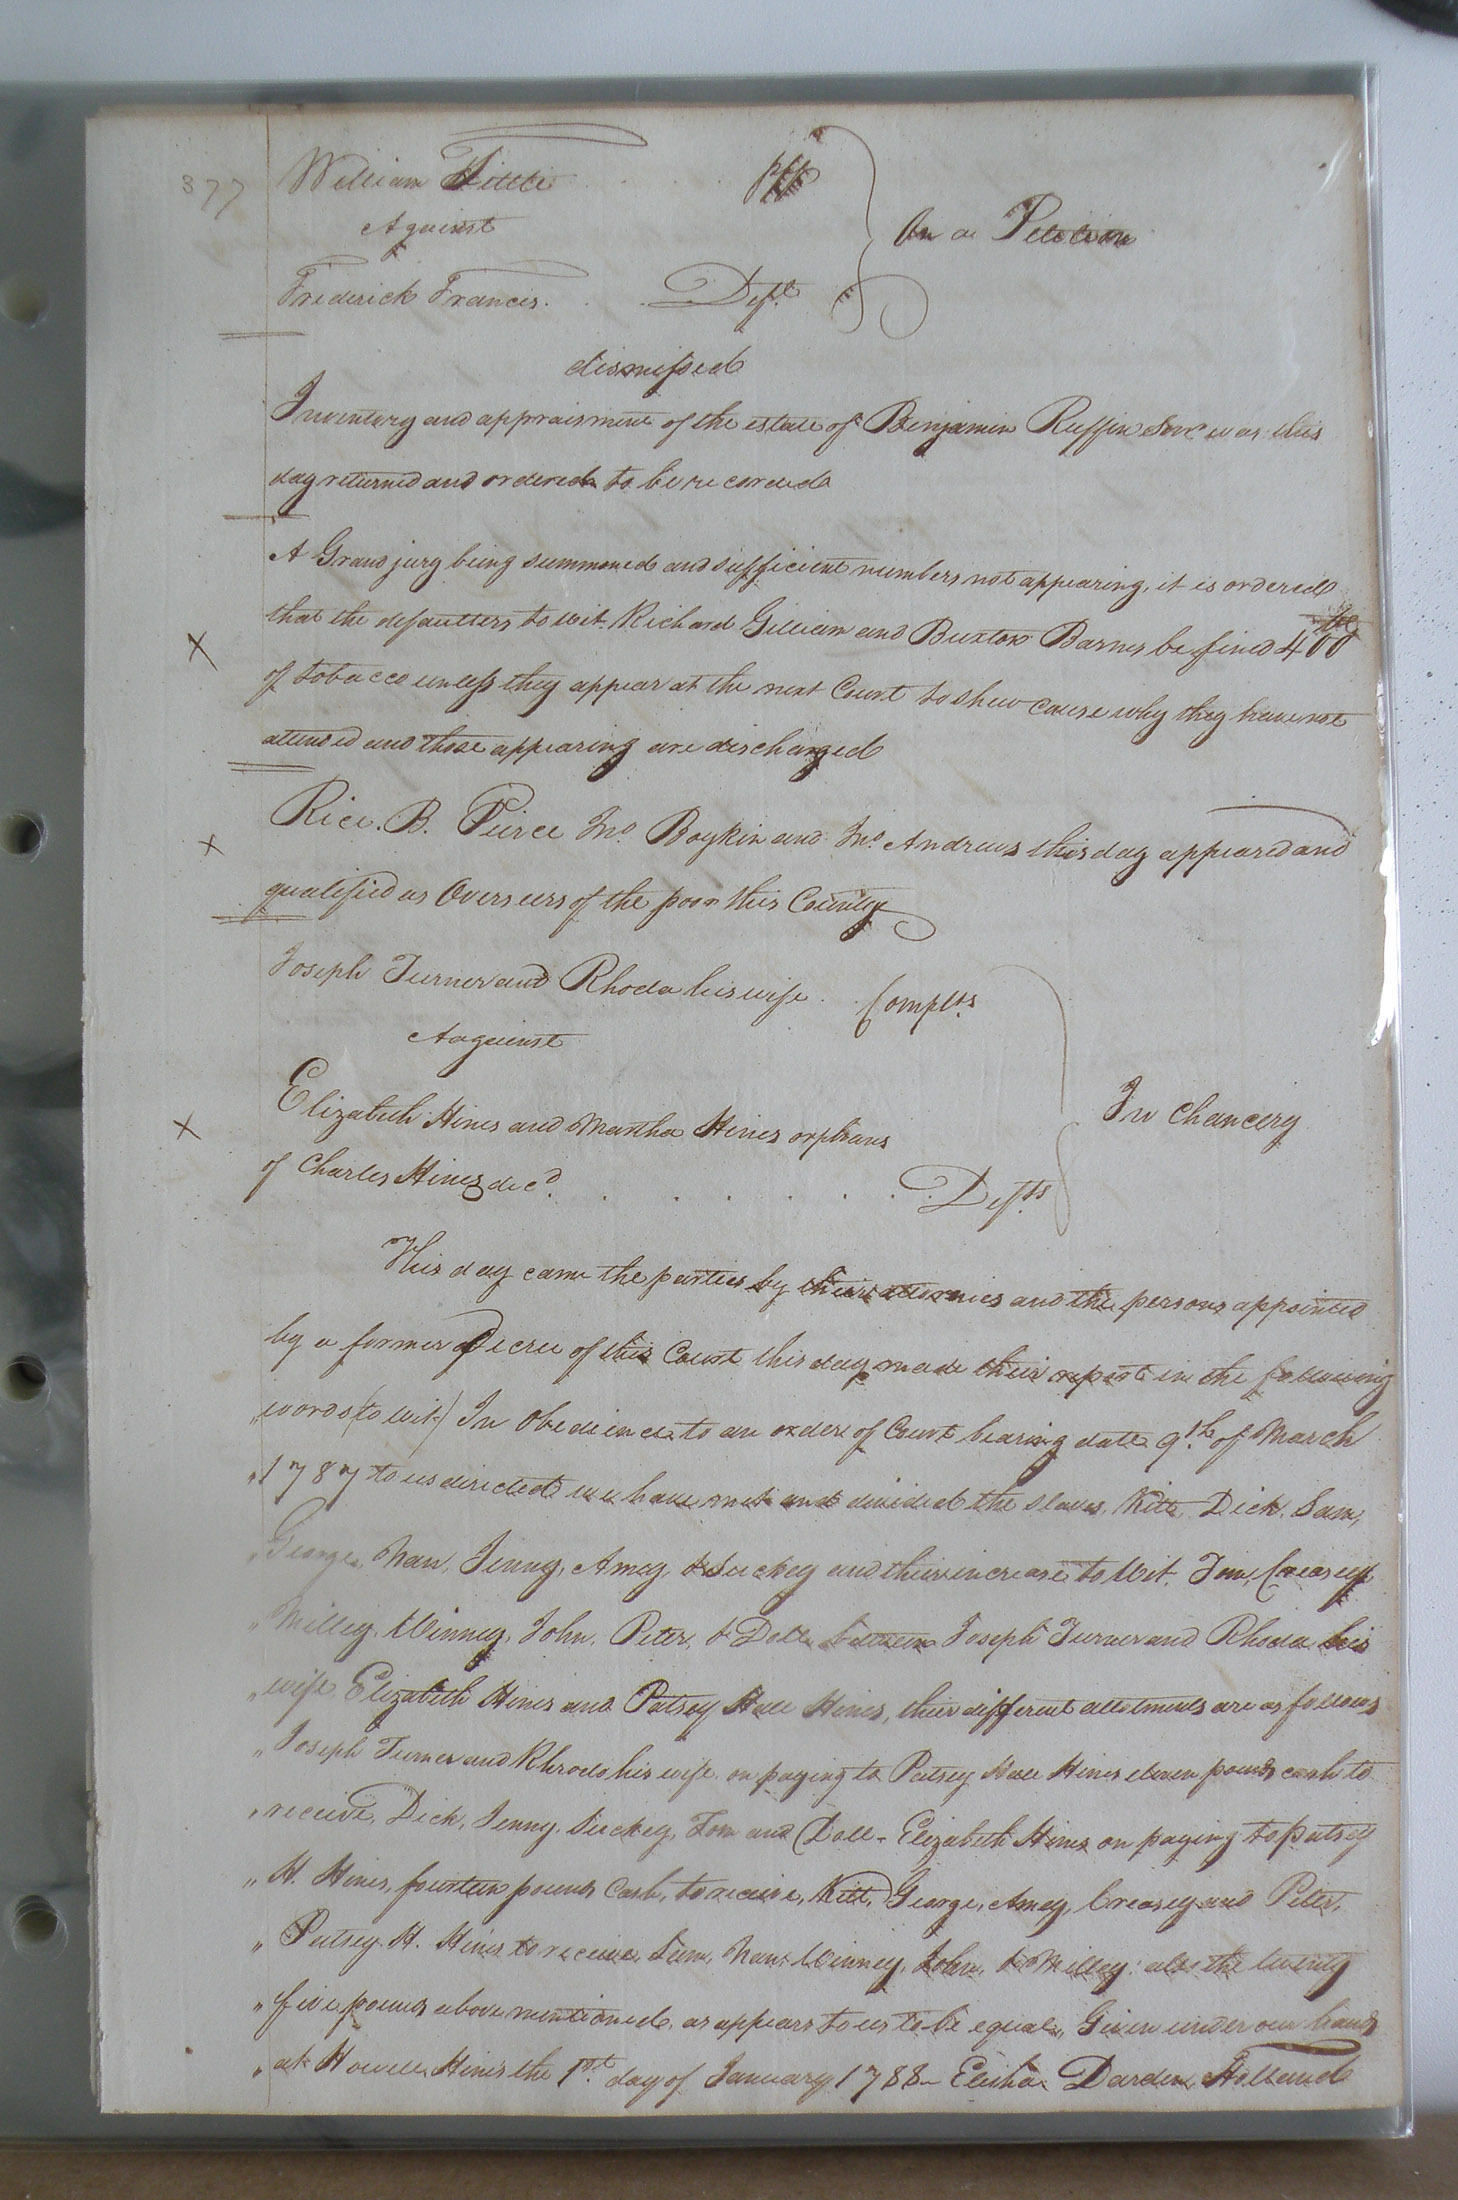 377
William Little . . . . . plt
Against
On a Petition
Frederick Francis. . . Deft.
dismissed
Inventory and appraisment of the estate of Benjamin Ruffin Senr. was this
day returned and ordered to be recorded
A Grand jury being summoned and sufficient numbers not appearing, it is ordered
that the defaulters to wit. Richard Gilliam and Buxton Barnes be fined 400 lbs
of tobacco unless they appear at the next Court to shew cause why they have not
attended and those appearing are discharged
Rice. B. Peirce Jno. Boykin and Jno. Andrews this day appeared and
qualified as Overseers of the poor this County
Joseph Turner and Rhoda his wife . . Complts.
Aagainst
In Chancery
Elizabeth Hines and Martha Hines orphans
of Charles Hines decd. . . . . . . . Defts.
This day came the parties by their attornies and the persons appointed
by a former Decree of this Court this day made their report in the following
„ words (to wit) In Obedience to an order of Court bearing date 9th. of March
„ 1787 to us directed we have met and divided the slaves, Kitt, Dick, Sam,
„ George, Nan, Jenny, Amey, & Suckey and their increase to Wit, Tom, Creasey
„ Milley, Winney, John, Peter, & Doll, between Joseph Turner and Rhoda his
„ wife Elizabeth Hines and Patsey Hall Hines, their different allotments are as follows
„ Joseph Turner and Rhoda his wife on paying to Patsey Hall Hines eleven pounds cash to
„ receive, Dick, Jenny, Suckey, Tom and Doll - Elizabeth Hines on paying to patsey
„ H. Hines, fourteen pounds Cash, to receive, Kitt, George, Amey, Creasey and Peter,
„ Patsey. H. Hines to receive Sam, Nan, Winney, John, & Milley: also the twenty
„ five pounds above mentioned, as appears to us to be equal, Given under our hands
„ at Howell Hines the 1st. day of January 1788 - Elisha Darden, Holland